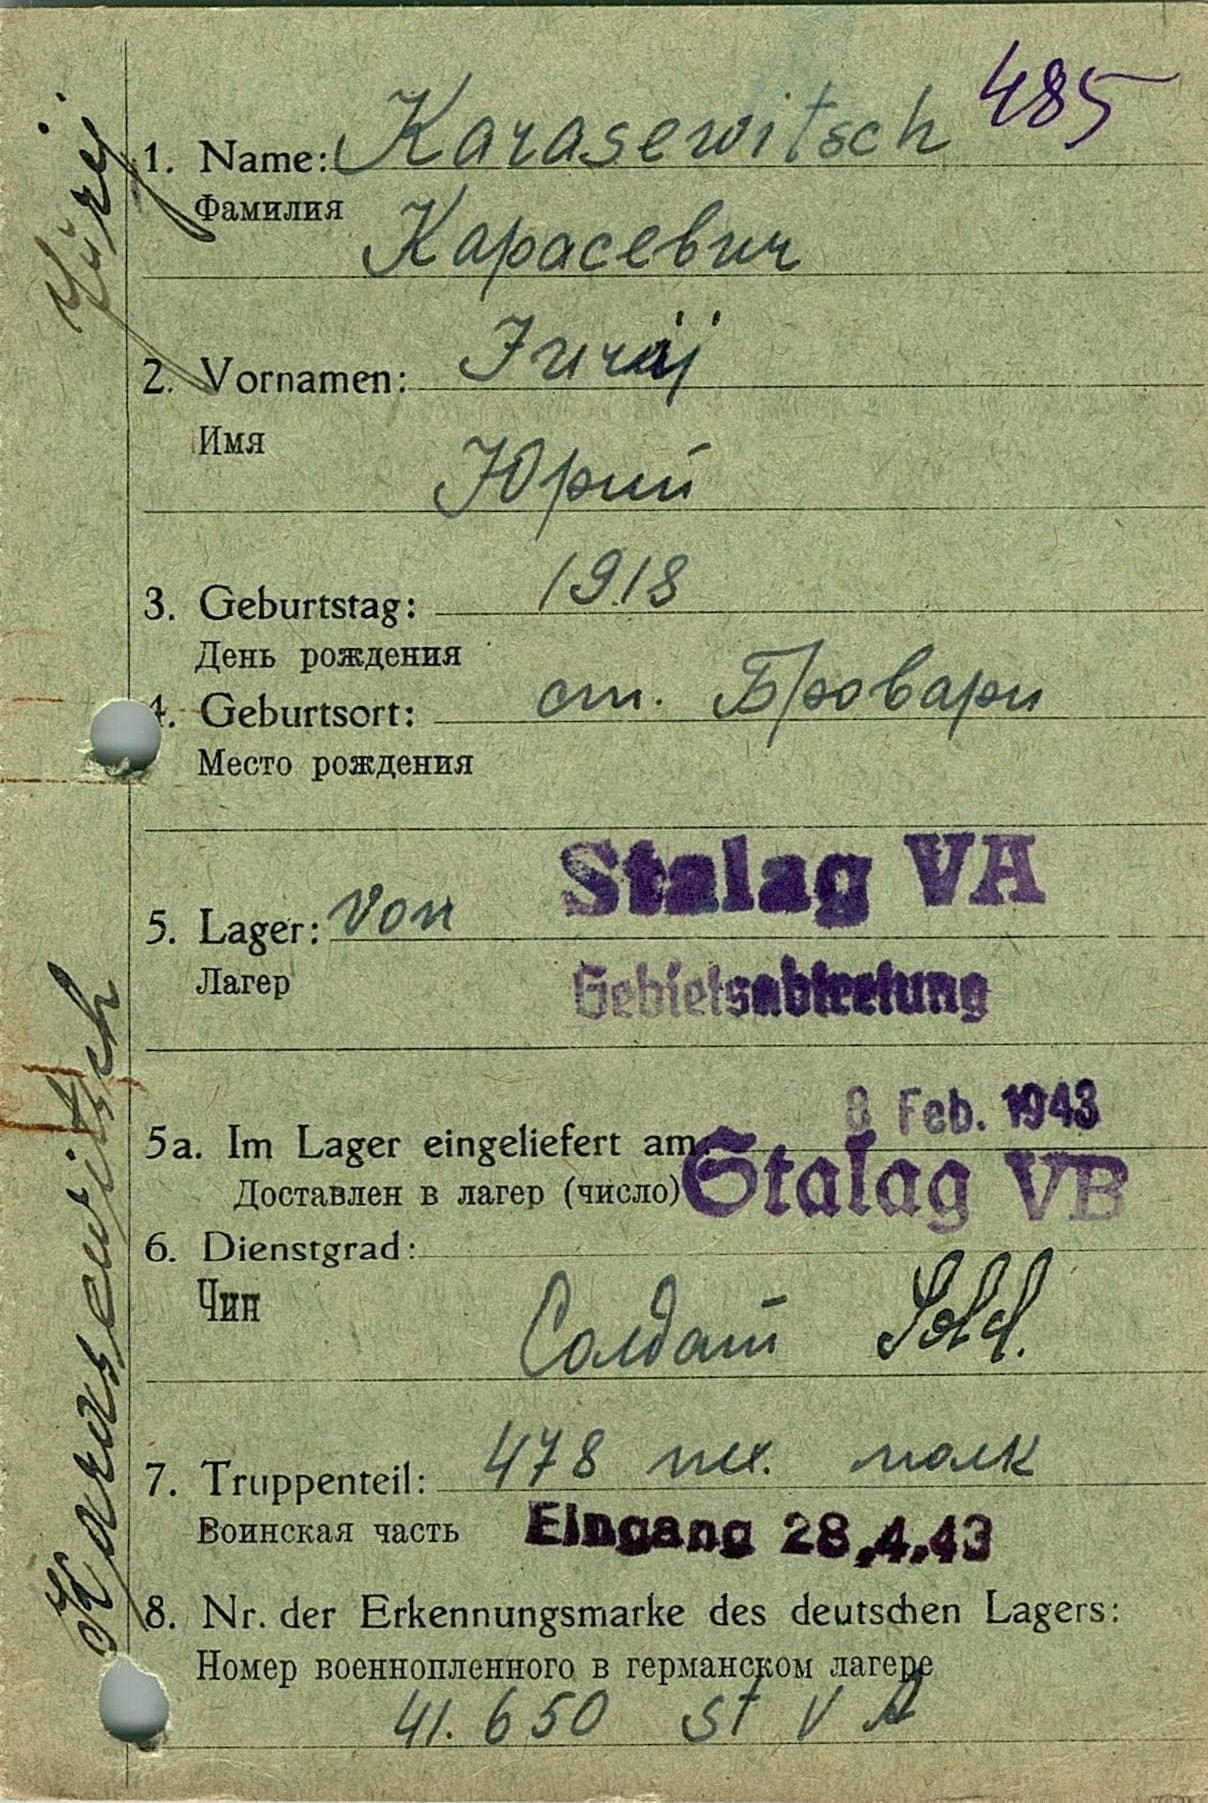 485
1. Name: Karasewitsch
Фамилия
Карасевич
2. Vornamen: Jurij
Имя
Юрий
3. Geburtstag: 1918
День рождения
4. Geburtsort: ст. Бровари
Место рождения
Stalag VA
5. Lager: von
Лагер
Gebietsabtretung
8 Feb. 1943
5a. Im Lager eingeliefert am:
Доставлен в лагер (число) Stalag VB
6. Dienstgrad:
Чин
Солдат Sold.
7. Truppenteil: 478 пех. полк
Воинская часть Eingang 28.4.43
8. Nr. der Erkennungsmarke des deutschen Lagers:
Номер военнопленного в германском лагере
41.650 St V A
Karasewitsch Jürij